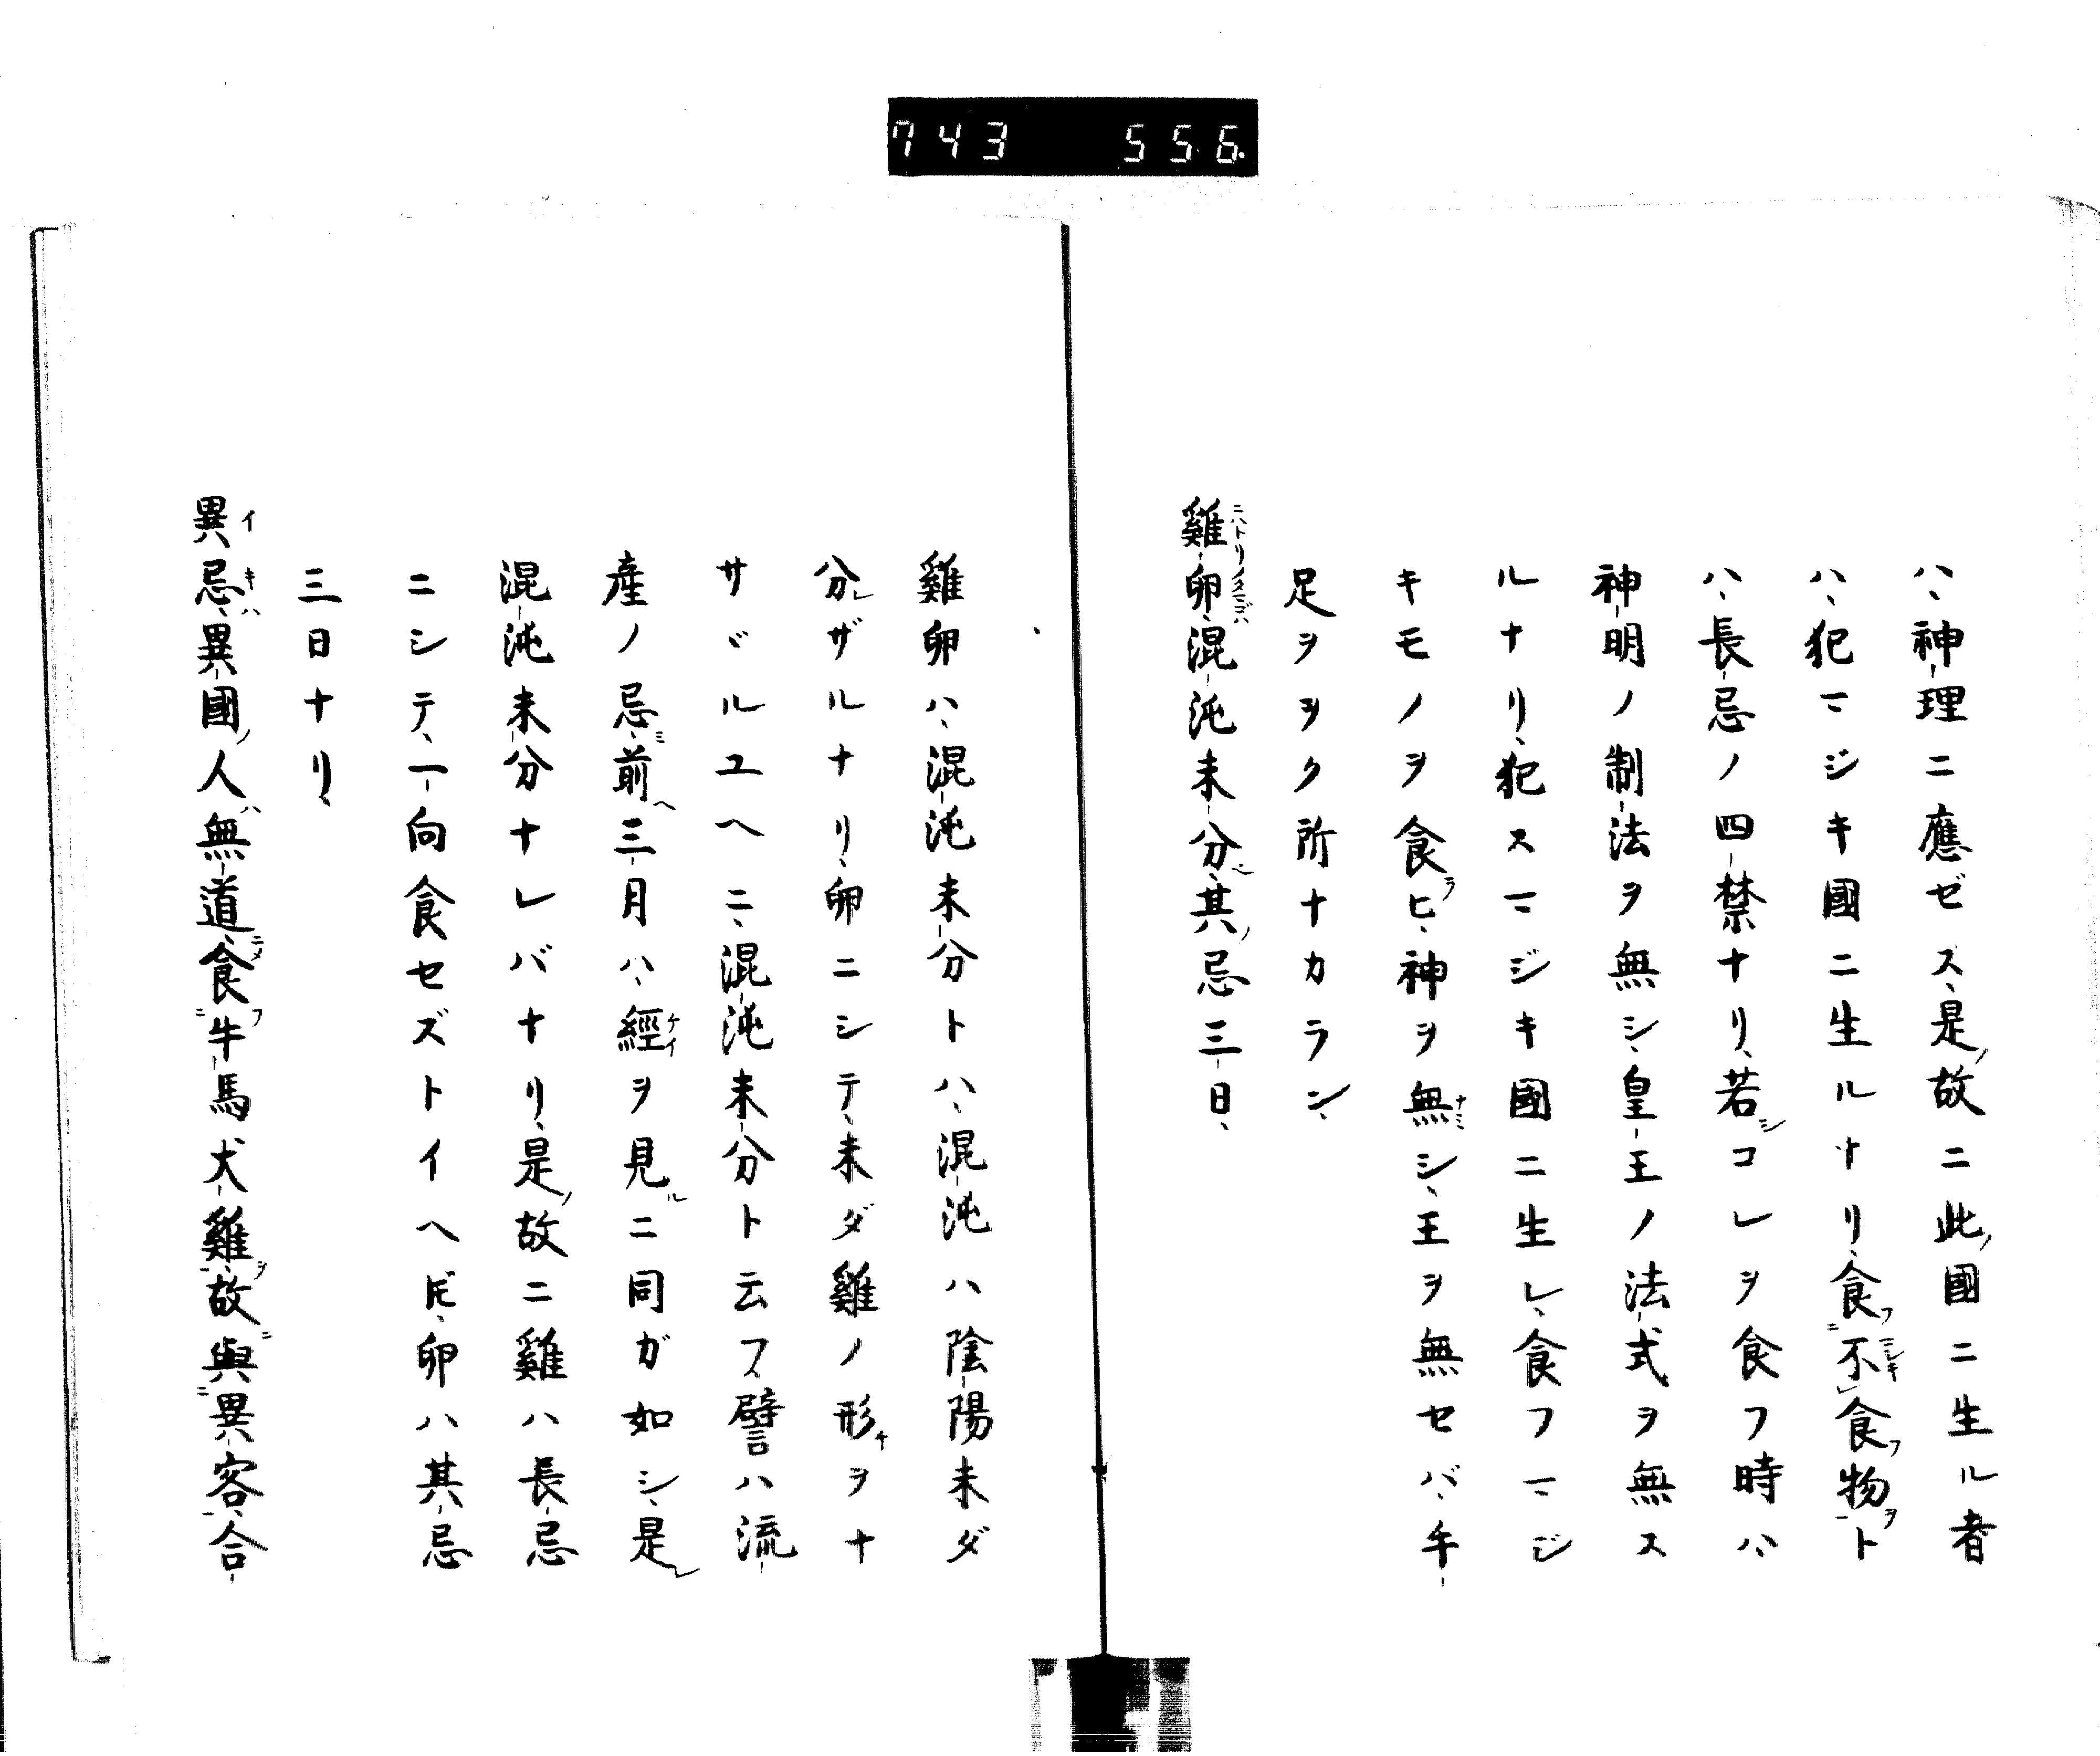 743 556
ハ、神理ニ應ゼズ、是ノ故ニ此ノ國ニ生ル者
ハ、犯マジキ國ニ生ルナリ、食フ不食フ物ヲト
ハ、長忌ノ四禁ナリ、若シコレヲ食フ時ハ、
神明ノ制法ヲ無シ、皇王ノ法式ヲ無ス
ルナリ、犯スマジキ國ニ生レ、食フマジ
キモノヲ食ヒ、神ヲ無シ、王ヲ無セバ、手
足ヲヲク所ナカラン、
雞卵、混沌未分、其ノ忌三日、
雞卵ハ、混沌未分トハ、混沌ハ陰陽未ダ
分レザルナリ、卵ニシテ、未ダ雞ノ形チヲナ
サヾルユヘニ、混沌未分ト云フ、譬ハ流
産ノ忌ミ、前ヘ三月ハ、經ヲ見ルニ同ガ如シ、是レ
混沌未分ナレバナリ、是ノ故ニ雞ハ長忌
ニシテ、一向食セズトイヘ𪜈、卵ハ其忌
三日ナリ、
異忌、異國ノ人ハ無道ニメ、食フ牛馬犬雞ヲ、故ニ與異客合